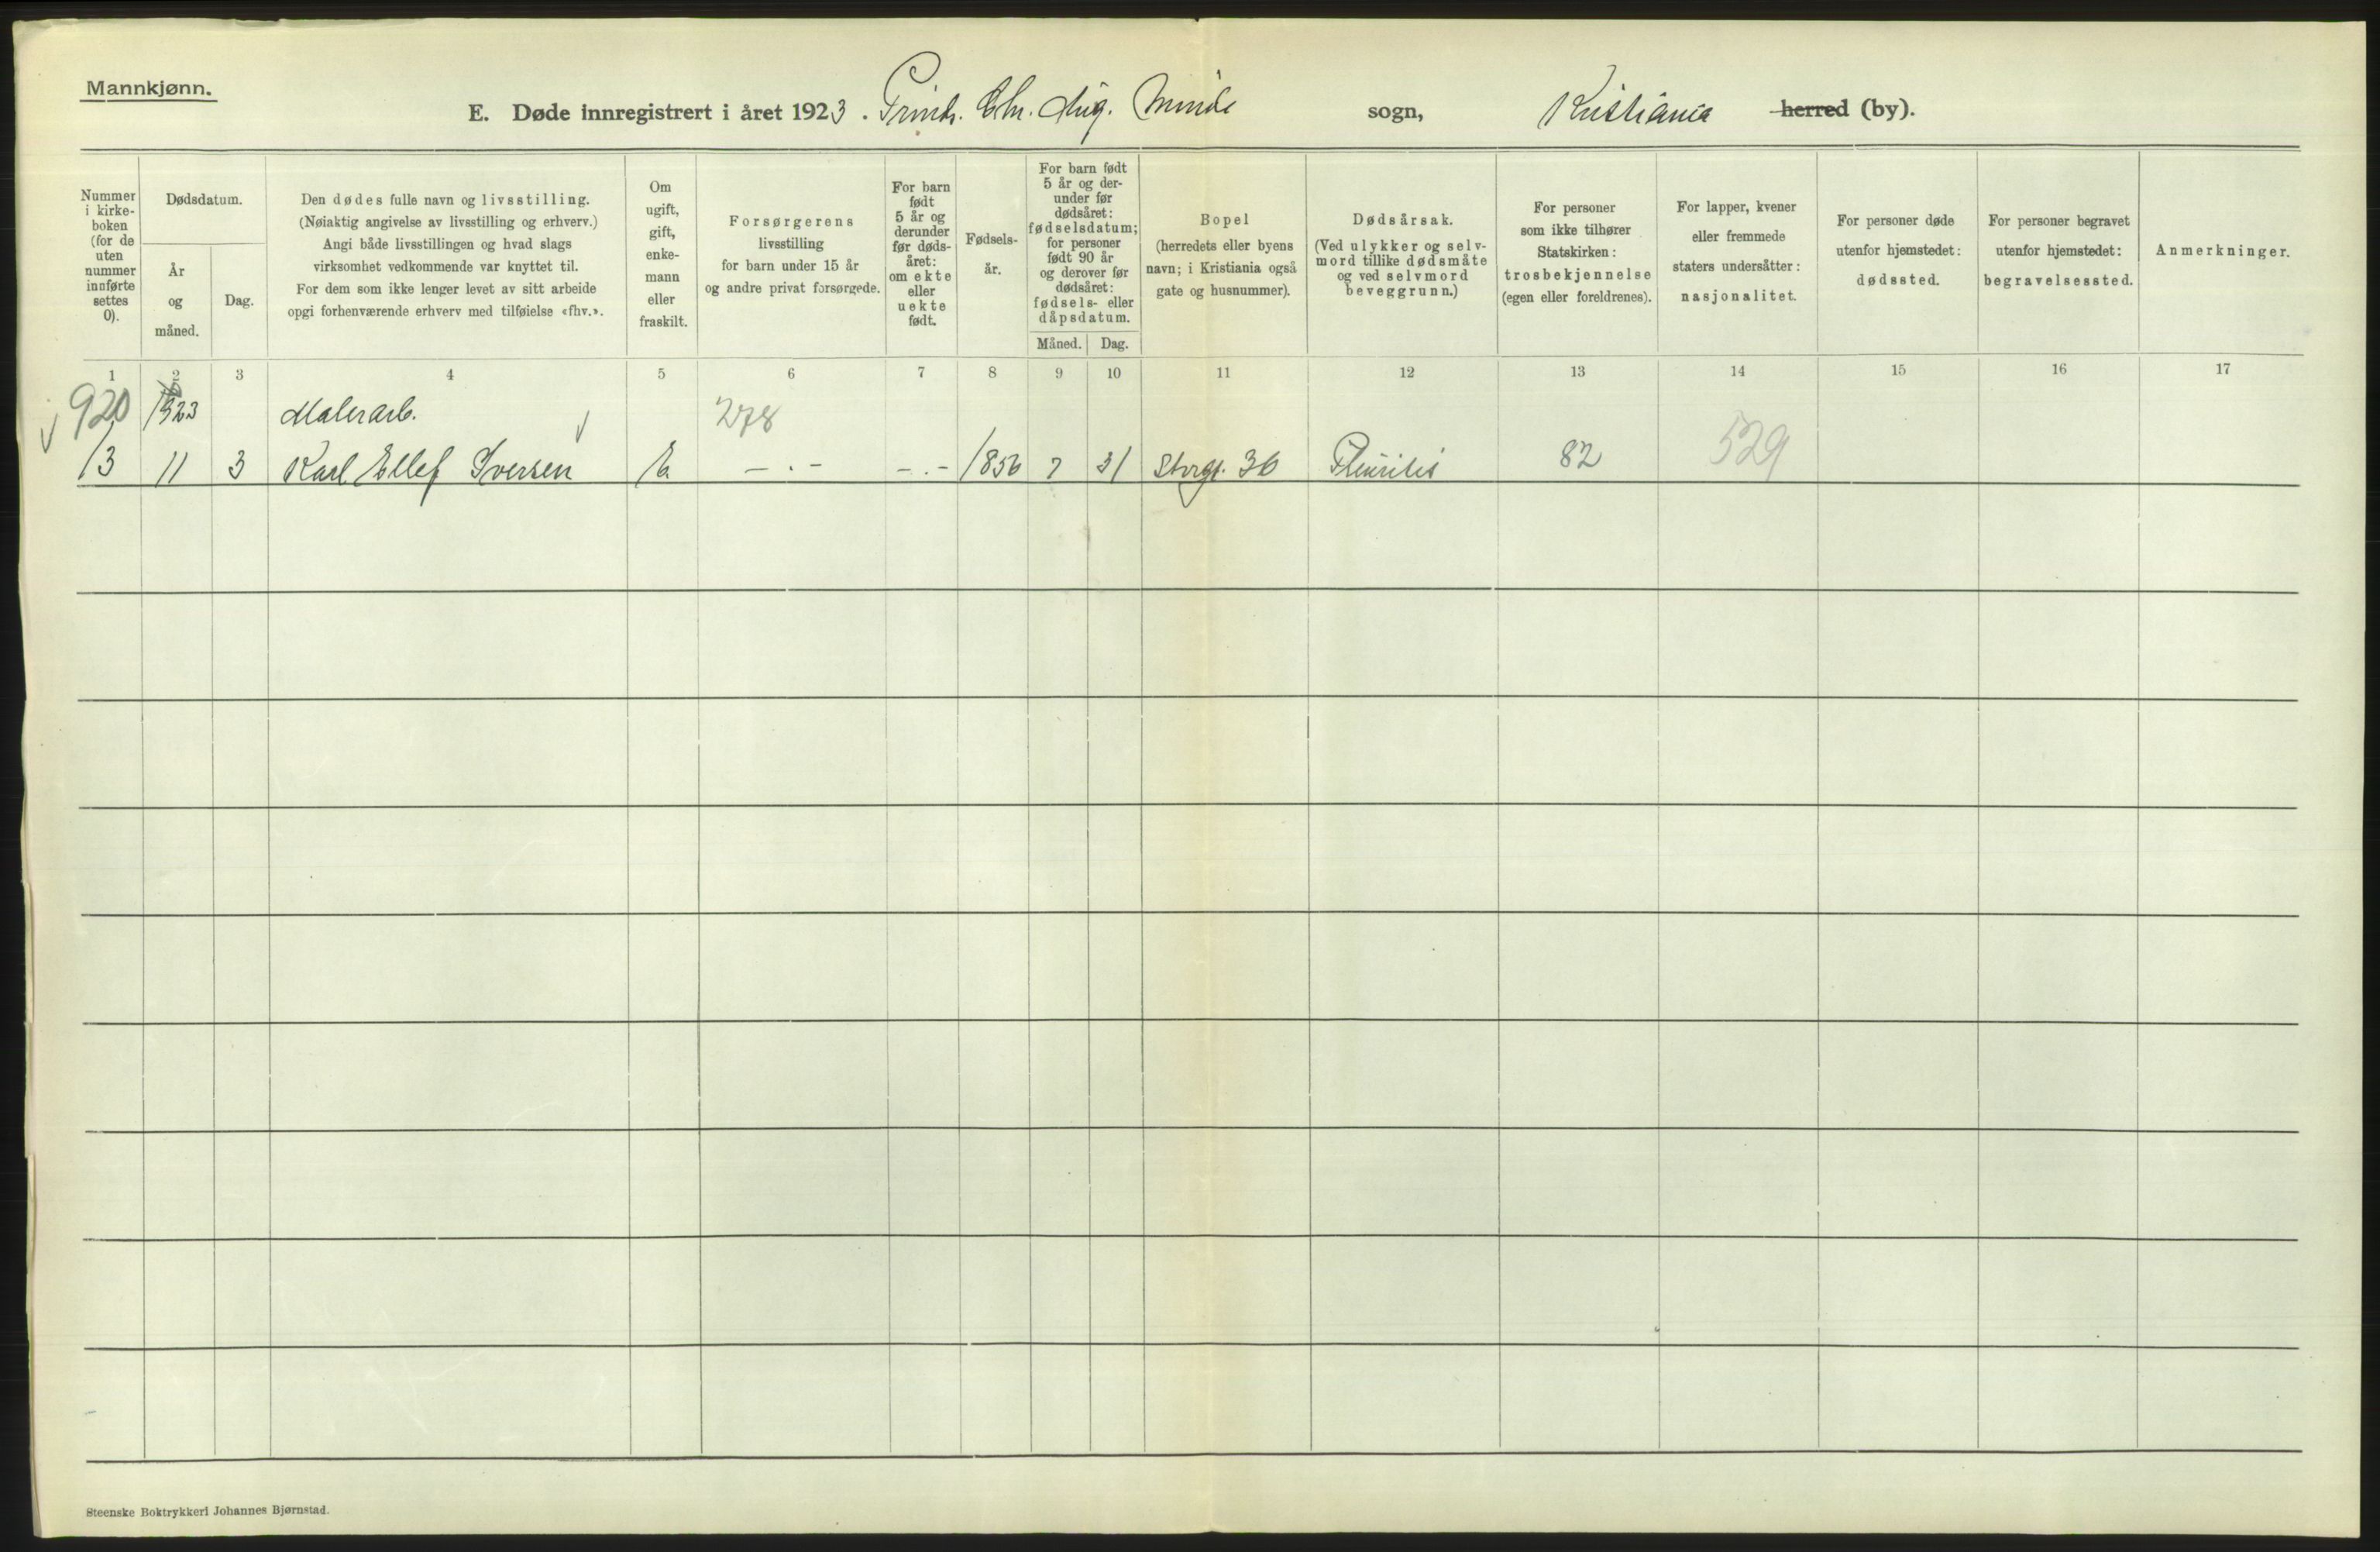 Mannkjønn.
E. Døde innregistrert i året 1923. Prinds. Chr. Aug. Minde sogn, Kristiania herred (by).
Nummer
i kirke-
boken
(for de
uten
nummer
innførte
settes
0).
Dødsdatum.
År
og
måned.
Dag.
Den dødes fulle navn og livsstilling.
(Nøiaktig angivelse av livsstilling og erhverv.)
Angi både livsstillingen og hvad slags
virksomhet vedkommende var knyttet til.
For dem som ikke lenger levet av sitt arbeide
opgi forhenværende erhverv med tilføielse «fhv.».
Om
ugift,
gift,
enke-
mann
eller
fraskilt.
Forsørgerens
livsstilling
for barn under 15 år
og andre privat forsørgede.
For barn
født
5 år og
derunder
før døds-
året:
om ekte
eller
uekte
født.
Fødsels-
år.
For barn født
5 år og der-
under før
dødsåret:
fødselsdatum;
for personer
født 90 år
og derover før
dødsåret:
fødsels- eller
dåpsdatum.
Måned.
Dag.
Bopel
(herredets eller byens
navn; i Kristiania også
gate og husnummer).
Dødsårsak.
(Ved ulykker og selv-
mord tillike dødsmåte
og ved selvmord
beveggrunn.)
For personer
som ikke tilhører
Statskirken:
trosbekjennelse
(egen eller foreldrenes).
For lapper, kvener
eller fremmede
staters undersåtter:
nasjonalitet.
For personer døde
utenfor hjemstedet:
dødssted.
For personer begravet
utenfor hjemstedet:
begravelsessted.
Anmerkninger.
1 2 3 4 5 6 7 8 9 10 11 12 13 14 15 16 17
920 1923 Malerarb. 278
13 11 3 Karl Ellef Iversen E - . - - . - 1856 7 31 Storgt. 36 Pleuritis 82 529
Steenske Boktrykkeri Johannes Bjørnstad.